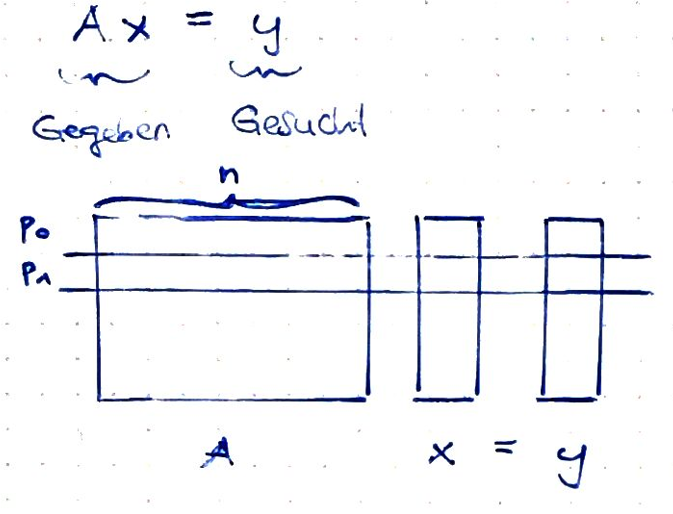 A x = y
Gegeben Gesucht
n
P0
P1
A x = y